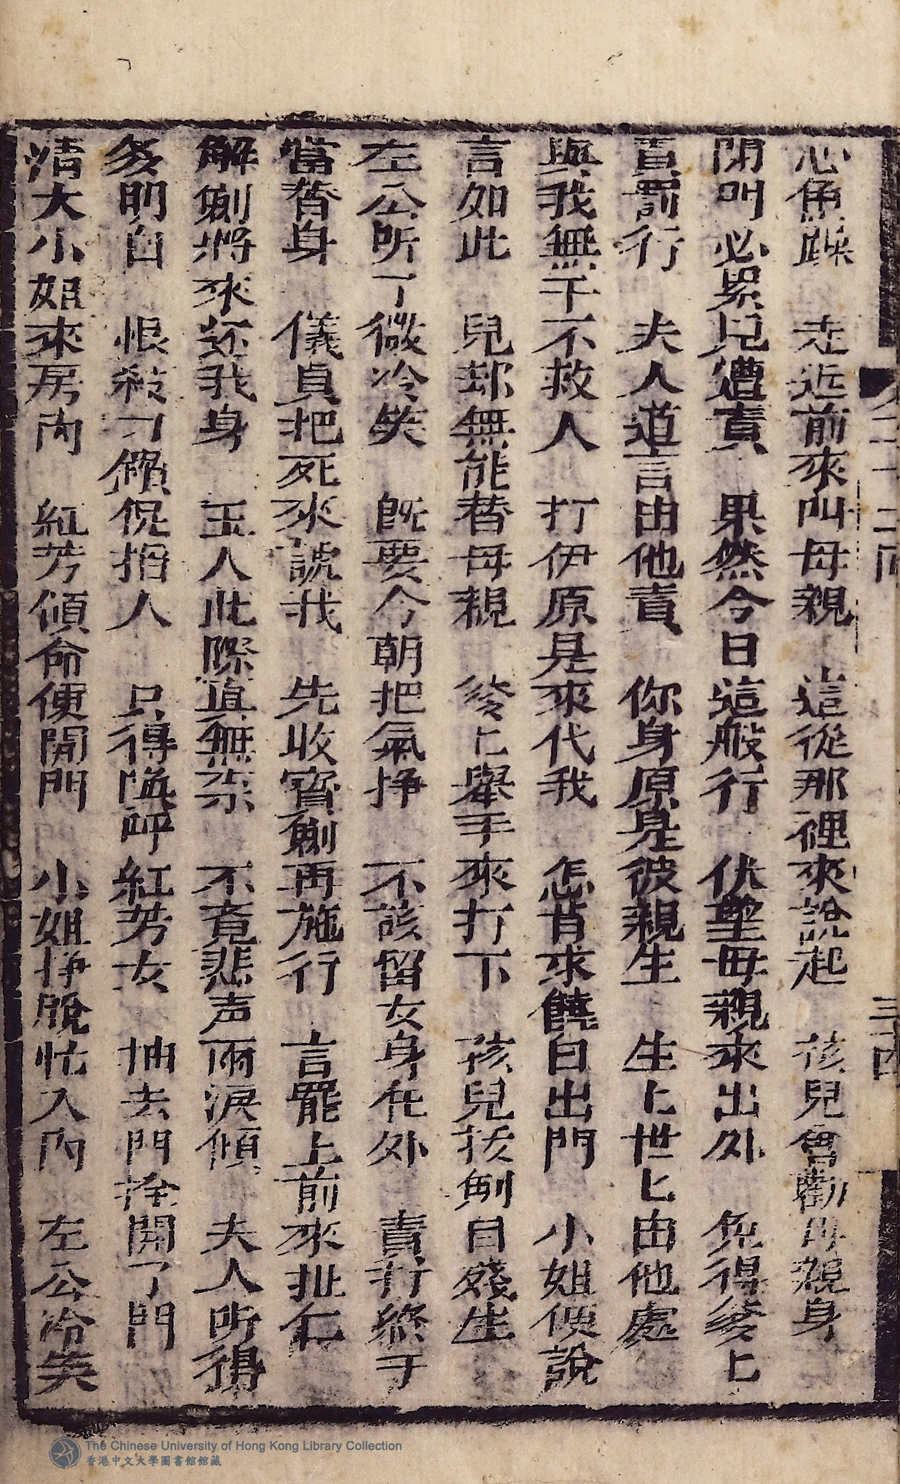 心焦躁　走近前來叫母親　這從那裡來說起　孩兒會勸母親身
閉門必累兒遭責　果然今日這般行　伏望母親來出外　免得爹匕
責罰行　夫人道言由他責　你身原是彼親生　生匕世匕由他處
與我無干不救人　打伊原是來代我　怎肯求饒自出門　小姐便說
言如此　兒却無能替母親　爹匕舉手來打下　孩兒拔劍自殘生
左公听了微冷笑　既要今朝把氣挣　不該留女身在外　責打終于
當替身　儀貞把死來諕我　先收寶劍再施行　言罷上前來扯仁
解劍將來还我身　玉人此際真無奈　不竟悲声兩淚傾　夫人听得
多明白　恨殺刁儕倪揞人　只得隨呼紅芳女　抽去門拴開了門
清大小姐來房内　紅芳傾命便開門　小姐挣脫忙入内　左公冷笑
二十二回
三十四
The Chinese University of Hong Kong Library Collection
香港中文大學圖書館館藏